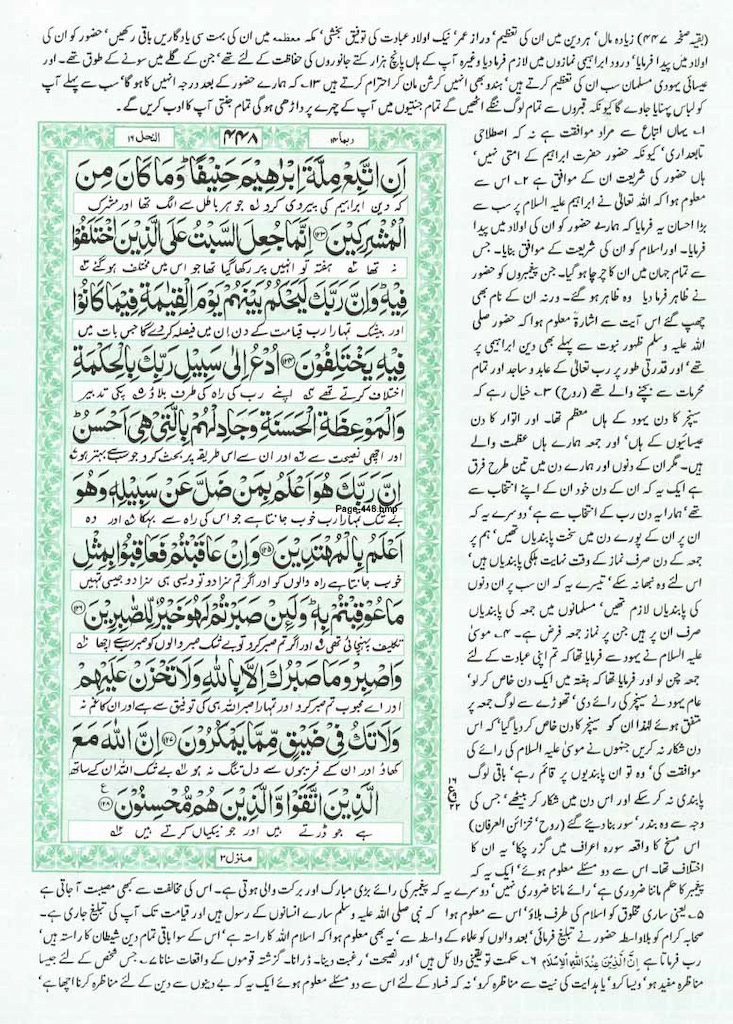 (بقیہ صفحہ ۴۴۷) زیادہ مال، ہر دین میں ان کی تعظیم، دراز عمر، نیک اولاد عبادت کی توفیق بخشی، مکہ معظمہ میں ان کی بہت سی یادگاریں باقی رکھیں، حضور کو ان کی
اولاد میں پیدا فرمایا، درود ابراہیمی نمازوں میں لازم فرما دیا وغیرہ آپ کے ہاں پانچ ہزار کتے جانوروں کی حفاظت کے لئے تھے، جن کے گلے میں سونے کے طوق تھے۔ اور
عیسائی یہودی مسلمان سب ان کی تعظیم کرتے ہیں، ہندو بھی انہیں کرشن مان کر احترام کرتے ہیں ۱۳۔ کہ ہمارے حضور کے بعد درجہ انہیں کا ہو گا، سب سے پہلے آپ
کو لباس پہنایا جاوے گا کیونکہ قبروں سے تمام لوگ ننگے اٹھیں گے تمام جنتیوں میں آپ کے چہرے پر داڑھی ہو گی تمام جنتی آپ کا ادب کریں گے۔
ربما ۱۴
۴۴۸
النحل ۱۶
اَنِ اتَّبِعْ مِلَّةَ اِبْرٰهِیْمَ حَنِیْفًا ؕ وَمَا کَانَ مِنَ
کہ دین ابراہیم کی پیروی کرو لہ جو ہر باطل سے الگ تھا اور مشرک
الْمُشْرِکِیْنَ ﴿۱۲۳﴾ اِنَّمَا جُعِلَ السَّبْتُ عَلَی الَّذِیْنَ اخْتَلَفُوْا
نہ تھا ہفتہ تو انہیں پر رکھا گیا تھا جو اس میں مختلف ہو گئے
فِیْهِ ؕ وَاِنَّ رَبَّکَ لَیَحْکُمُ بَیْنَهُمْ یَوْمَ الْقِیٰمَةِ فِیْمَا کَانُوْا
اور بیشک تمہارا رب قیامت کے دن ان میں فیصلہ کر دے گا جس بات میں
فِیْهِ یَخْتَلِفُوْنَ ﴿۱۲۴﴾ اُدْعُ اِلٰی سَبِیْلِ رَبِّکَ بِالْحِکْمَةِ
اختلاف کرتے تھے اپنے رب کی راہ کی طرف بلاؤ پکی تدبیر
وَالْمَوْعِظَةِ الْحَسَنَةِ وَجَادِلْهُمْ بِالَّتِیْ هِیَ اَحْسَنُ ؕ
اور اچھی نصیحت سے اور ان سے اس طریقہ پر بحث کرو جو سب سے بہتر ہو
اِنَّ رَبَّکَ هُوَ اَعْلَمُ بِمَنْ ضَلَّ عَنْ سَبِیْلِهٖ وَهُوَ
Page_448.bmp
بے شک تمہارا رب خوب جانتا ہے جو اس کی راہ سے بہکا اور وہ
اَعْلَمُ بِالْمُهْتَدِیْنَ ﴿۱۲۵﴾ وَاِنْ عَاقَبْتُمْ فَعَاقِبُوْا بِمِثْلِ
خوب جانتا ہے راہ والوں کو اور اگر تم سزا دو تو ویسی ہی سزا دو جیسی تمہیں
مَا عُوْقِبْتُمْ بِهٖ ؕ وَلَئِنْ صَبَرْتُمْ لَهُوَ خَیْرٌ لِّلصّٰبِرِیْنَ ﴿۱۲۶﴾
تکلیف پہنچائی تھی اور اگر تم صبر کرو تو بے شک صبر والوں کو صبر سب سے اچھا
وَاصْبِرْ وَمَا صَبْرُکَ اِلَّا بِاللّٰهِ وَلَا تَحْزَنْ عَلَیْهِمْ
اور اے محبوب تم صبر کرو اور تمہارا صبر اللہ ہی کی توفیق سے ہے اور ان کا غم نہ
وَلَا تَکُ فِیْ ضَیْقٍ مِّمَّا یَمْکُرُوْنَ ﴿۱۲۷﴾ اِنَّ اللّٰهَ مَعَ
کھاؤ اور ان کے فریبوں سے دل تنگ نہ ہو بے شک اللہ ان کے ساتھ
الَّذِیْنَ اتَّقَوْا وَّالَّذِیْنَ هُمْ مُّحْسِنُوْنَ ﴿۱۲۸﴾
ہے جو ڈرتے ہیں اور جو نیکیاں کرتے ہیں
منزل ۳
۱۔ یہاں اتباع سے مراد موافقت ہے نہ کہ اصطلاحی
تابعداری، کیونکہ حضور حضرت ابراہیم کے امتی نہیں،
ہاں حضور کی شریعت ان کے موافق ہے ۲۔ اس سے
معلوم ہوا کہ اللہ تعالیٰ نے ابراہیم علیہ السلام پر سب سے
بڑا احسان یہ فرمایا کہ ہمارے حضور کو ان کی اولاد میں پیدا
فرمایا۔ اور اسلام کو ان کی شریعت کے موافق بنایا۔ جس
سے تمام جہان میں ان کا چرچا ہو گیا۔ جن پیغمبروں کو حضور
نے ظاہر فرما دیا وہ ظاہر ہو گئے۔ ورنہ ان کے نام بھی
چھپ گئے اس آیت سے اشارۃً معلوم ہوا کہ حضور صلی
اللہ علیہ وسلم ظہور نبوت سے پہلے بھی دین ابراہیمی پر
تھے، اور قدرتی طور پر رب تعالیٰ کے عابد و ساجد اور تمام
محرمات سے بچنے والے تھے (روح) ۳۔ خیال رہے کہ
سنیچر کا دن یہود کے ہاں معظم تھا۔ اور اتوار کا دن
عیسائیوں کے ہاں، اور جمعہ ہمارے ہاں عظمت والے
ہیں۔ مگر ان کے دنوں اور ہمارے دن میں تین طرح فرق
ہے ایک یہ کہ ان کے دن خود ان کے اپنے انتخاب سے
تھے، ہمارا یہ دن رب کے انتخاب سے ہے، دوسرے یہ کہ
ان پر ان کے پورے دن میں سخت پابندیاں تھیں، ہم پر
جمعہ کے دن صرف نماز کے وقت نہایت ہلکی پابندیاں ہیں،
اس لئے وہ نبھا نہ سکے، تیسرے یہ کہ ان سب پر ان دنوں
کی پابندیاں لازم تھیں، مسلمانوں میں جمعہ کی پابندیاں
صرف ان پر ہیں جن پر نماز جمعہ فرض ہے۔ ۴۔ موسیٰ
علیہ السلام نے یہود سے فرمایا تھا کہ تم اپنی عبادت کے لئے
جمعہ چن لو اور فرمایا تھا کہ ہفتہ میں ایک دن خاص کر لو،
عام یہود نے سنیچر کی رائے دی، تھوڑے سے لوگ جمعہ پر
متفق ہوئے لہٰذا ان کو سنیچر کا دن خاص کر دیا گیا، کہ اس
دن شکار نہ کریں جنہوں نے موسیٰ علیہ السلام کی رائے کی
موافقت کی، وہ تو ان پابندیوں پر قائم رہے، باقی لوگ
پابندی نہ کر سکے اور اس دن میں شکار کر بیٹھے، جس کی
وجہ سے وہ بندر، سور بنا دیئے گئے (روح، خزائن العرفان)
اس مسخ کا واقعہ سورہ اعراف میں گزر چکا، یہ ان کا
اختلاف تھا۔ اس سے دو مسئلے معلوم ہوئے، ایک یہ کہ
پیغمبر کا حکم ماننا ضروری ہے، رائے ماننا ضروری نہیں، دوسرے یہ کہ پیغمبر کی رائے بڑی مبارک اور برکت والی ہوتی ہے۔ اس کی مخالفت سے کبھی مصیبت آ جاتی ہے
۵۔ یعنی ساری مخلوق کو اسلام کی طرف بلاؤ، اس سے معلوم ہوا کہ نبی صلی اللہ علیہ وسلم سارے انسانوں کے رسول ہیں اور قیامت تک آپ کی تبلیغ جاری ہے۔
صحابہ کرام کو بلاواسطہ حضور نے تبلیغ فرمائی، بعد والوں کو علماء کے واسطہ سے، یہ بھی معلوم ہوا کہ اسلام اللہ کا راستہ ہے، اس کے سوا باقی تمام دین شیطان کا راستہ ہیں،
رب فرماتا ہے اِنَّ الدِّیْنَ عِنْدَ اللّٰهِ الْاِسْلَام ۶۔ حکمت تو یقینی دلائل ہیں، اور نصیحت، رغبت دینا۔ ڈرانا۔ گزشتہ قوموں کے واقعات سنانا ۷۔ جس شخص کے لئے جیسا
مناظرہ مفید ہو، ویسا کرو، یا ہدایت کی نیت سے مناظرہ کرو، نہ کہ فساد کے لئے اس سے دو مسئلے معلوم ہوئے ایک یہ کہ بے دینوں سے دین کے لئے مناظرہ کرنا اچھا ہے،